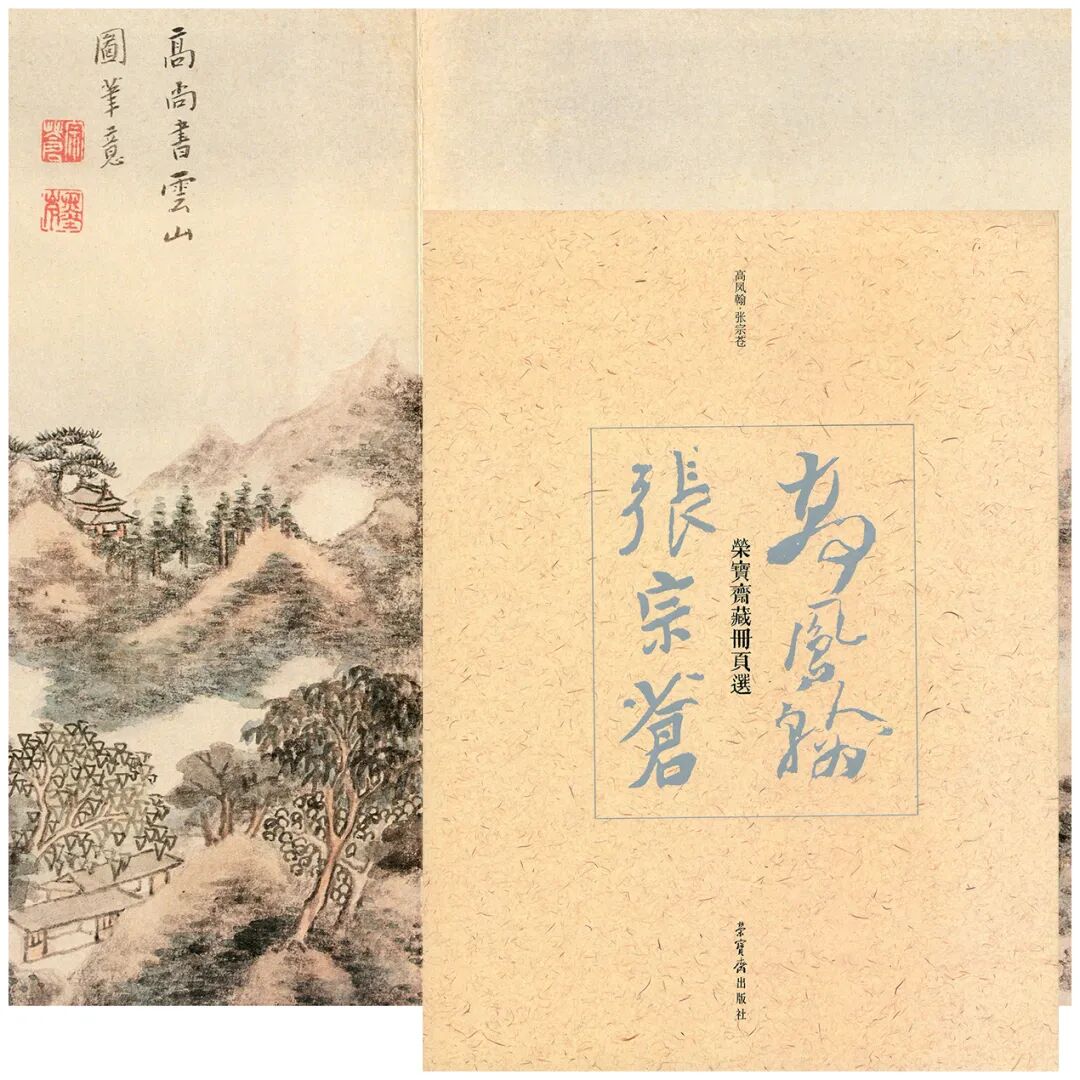 高尚書雲山
圖筆意
高凤翰·张宗苍
高鳳翰
榮寶齋藏冊頁選
張宗蒼
榮寶齋出版社